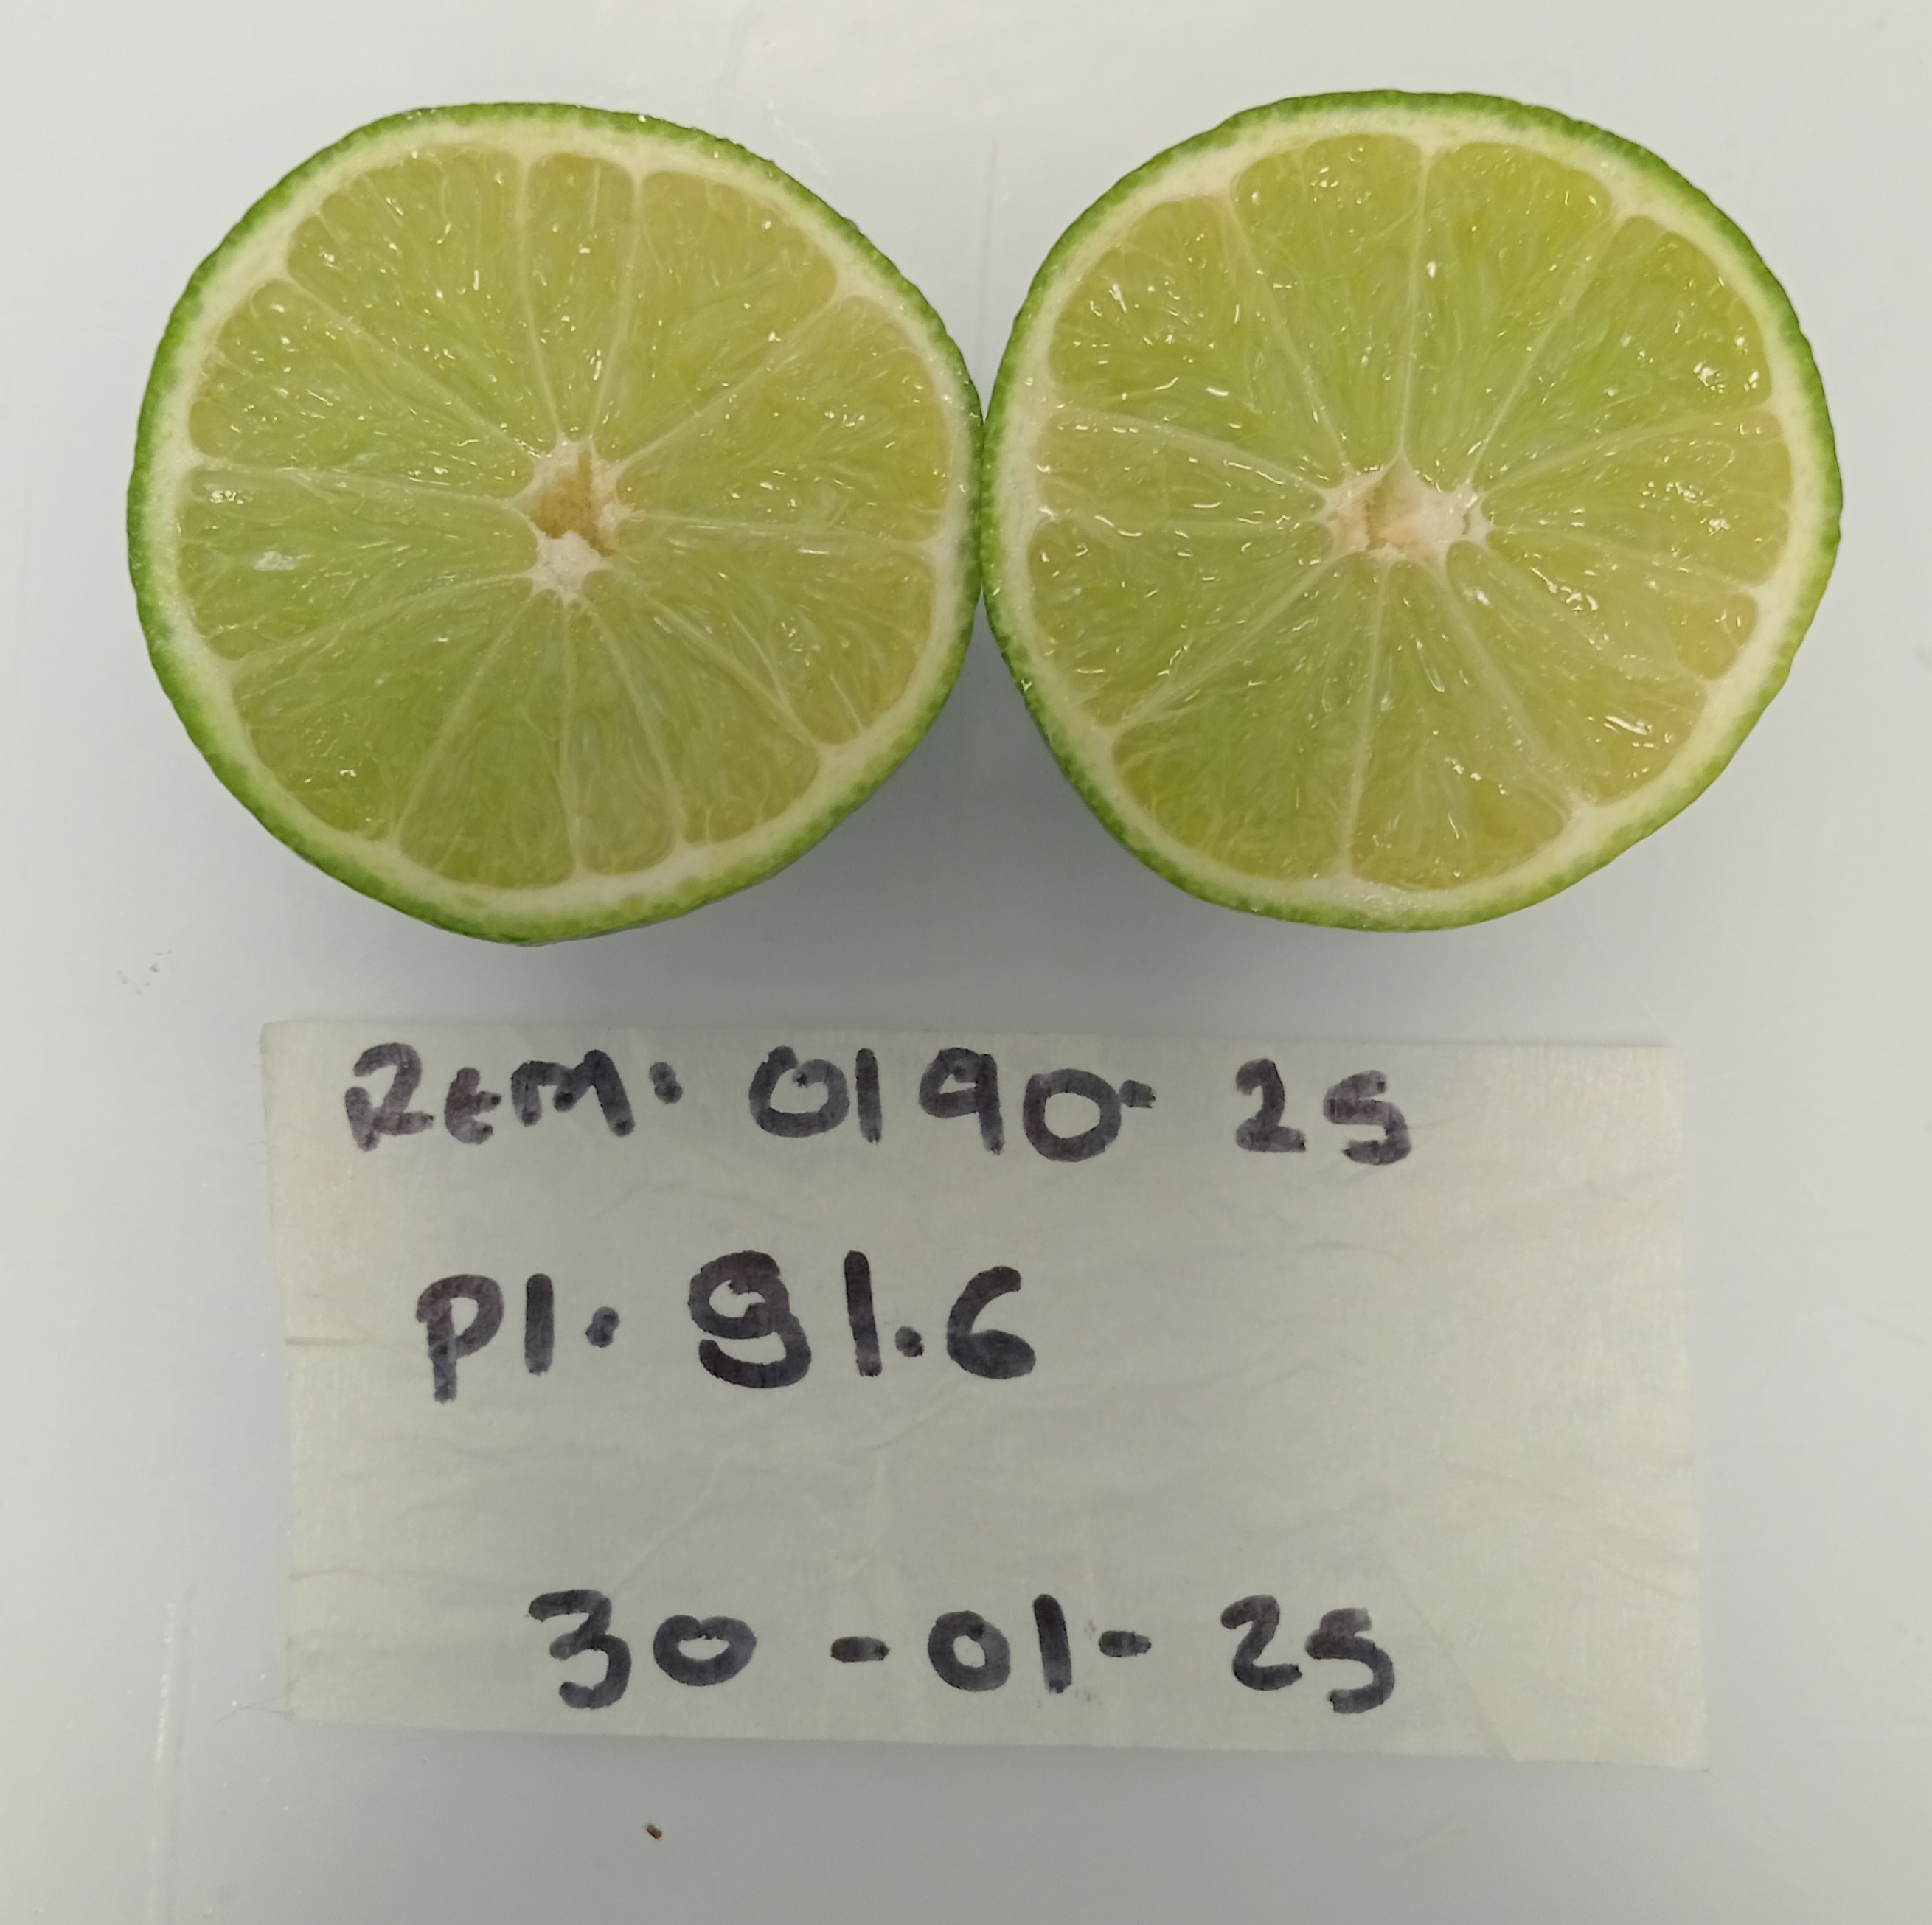 REM: 0190-25
P1. 91.6
30-01-25